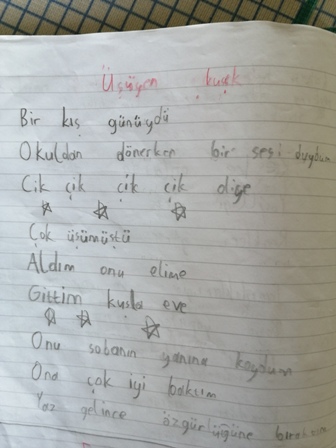 Üşüyen kuşk
Bir kış günüydü
Okuldan dönerken bir sesi duydum
Cik çik çik çik diye
Çok üşümüştü
Aldım onu elime
Gittim kuşla eve
Onu sobanın yanına koydum
Ona çok iyi baktım
Yaz gelince özgürlüğüne bıraktım